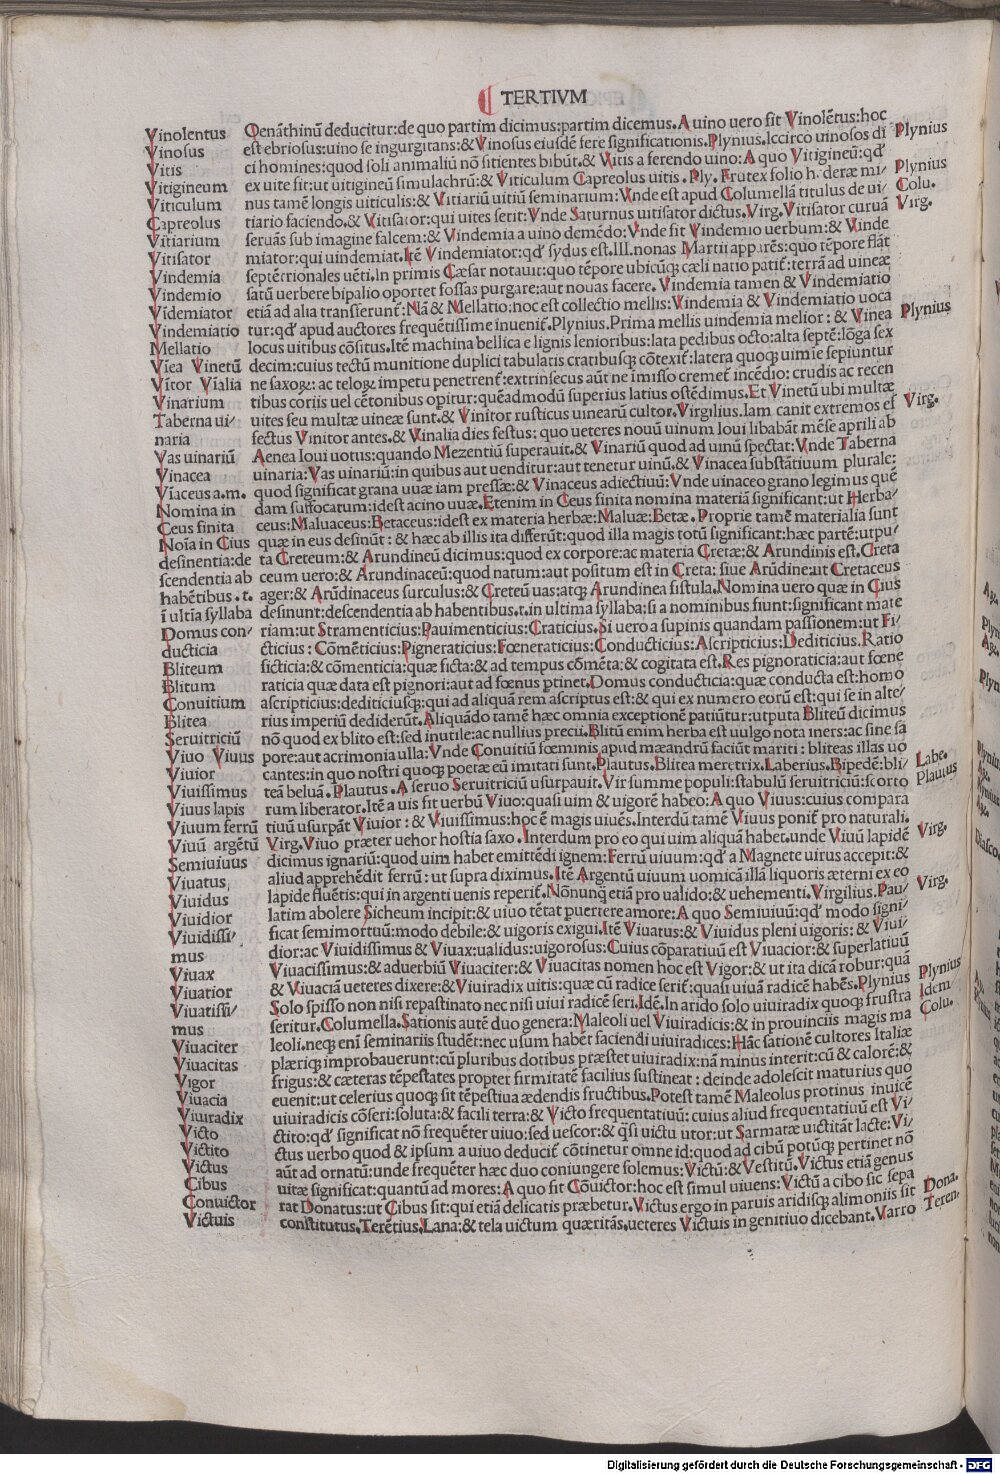 TERTIVM
Vinolentus
Vinosus
Vitis
Vitigineum
Viticulum
Capreolus
Vitiarium
Vitisator
Vindemia
Vindemio
Vīdemiator
Vindemiatio
Mellatio
Vīea Vinetū
Vītor Vīalia
Vinarium
Taberna ui/
naria
Vas uinariū
Vinacea
Vīaceus a.m.
Nomina in
Ceus finita
Noīa in Cius
desinentia:de
scendentia ab
habētibus .t.
ī ultīa syllaba
Domus con/
ducticia
Bliteum
Blitum
Conuitium
Blitea
Seruitriciū
Viuo Viuus
Viuior
Viuissimus
Viuus lapis
Viuum ferrū
Viuū argētū
Semiuiuus
Viuatus
Viuidus
Viuidior
Viuidissi/
mus
Viuax
Viuatior
Viuatissi/
mus
Viuaciter
Viuacitas
Vigor
Viuacia
Viuiradix
Victo
Victito
Victus
Cibus
Conuictor
Victuis
Oenāthinū deducitur:de quo partim dicimus:partim dicemus.A uino uero fit Vinolētus:hoc
est ebriosus:uino se ingurgitans:& Vinosus eiusdē fere significationis.Plynius.Iccirco uinosos di
ci homines:quod soli animaliū nō sitientes bibūt.& Vitis a ferendo uino:A quo Vitigineū:qd'
ex uite fit:ut uitigineū simulachrū:& Viticulum Capreolus uitis.Ply.Frutex folio hederæ mi/
nus tamē longis uiticulis:& Vitiariū uitiū seminarium:Vnde est apud Columellā titulus de ui/
tiario faciendo.& Vitisator:qui uites serit:Vnde Saturnus uitisator dictus.Virg.Vitisator curuā
seruās sub imagine falcem:& Vindemia a uino demēdo:Vnde fit Vindemio uerbum:& Vinde
miator:qui uindemiat.Itē Vindemiator:qd' sydus est.III.nonas Martii apparēs:quo tēpore flāt
septētrionales uēti.In primis Cæsar notauit:quo tēpore ubicūq; cæli natio patit̄:terrā ad uineæ
satū uerbere bipalio oportet fossas purgare:aut nouas facere.Vindemia tamen & Vindemiatio
etiā ad alia transferunt̄:Nā & Mellatio:hoc est collectio mellis:Vindemia & Vindemiatio uoca
tur:qd' apud auctores frequētissime inuenit̄.Plynius.Prima mellis uindemia melior:& Vinea
locus uitibus cōsitus.Itē machina bellica e lignis lenioribus:lata pedibus octo:alta septē:lōga sex
decim:cuius tectū munitione duplici tabulatis cratibusq; cōtexit̄:latera quoq; uimīe sepiuntur
ne saxoꝝ:ac teloꝝ impetu penetrent̄:extrinsecus aūt ne imisso cremet̄ incēdio:crudis ac recen
tibus coriis uel cētonibus opitur:quēadmodū superius latius ostēdimus.Et Vinetū ubi multæ
uites seu multæ uineæ sunt.& Vinitor rusticus uinearū cultor.Virgilius.Iam canit extremos ef
fectus Vinitor antes.& Vinalia dies festus:quo ueteres nouū uinum Ioui libabāt mēse aprili ab
Aenea Ioui uotus:quando Mezentiū superauit.& Vinariū quod ad uinū spectat:Vnde Taberna
uinaria:Vas uinariū:in quibus aut uenditur:aut tenetur uinū.& Vinacea substātiuum plurale:
quod significat grana uuæ iam pressæ:& Vinaceus adiectiuū:Vnde uinaceo grano legimus quē
dam suffocatum:idest acino uuæ.Etenim in Ceus finita nomina materiā significant:ut Herba/
ceus:Maluaceus:Betaceus:idest ex materia herbæ:Maluæ:Betæ.Proprie tamē materialia sunt
quæ in eus desinūt:& hæc ab illis ita differūt:quod illa magis totū significant:hæc partē:utpu/
ta Creteum:& Arundineū dicimus:quod ex corpore:ac materia Cretæ:& Arundinis est.Creta
ceum uero:& Arundinaceū:quod natum:aut positum est in Creta:siue Arūdine:ut Cretaceus
ager:& Arūdinaceus surculus:& Creteū uas:atq; Arundinea fistula.Nomina uero quæ in Cius
desinunt:descendentia ab habentibus.t.in ultima syllaba:si a nominibus fiunt:significant mate
riam:ut Stramenticius:Pauimenticius:Craticius.Si uero a supinis quandam passionem:ut Fi/
cticius:Cōmēticius:Pigneraticius:Fœneraticius:Conducticius:Ascripticius:Dediticius.Ratio
ficticia:& cōmenticia:quæ ficta:& ad tempus cōmēta:& cogitata est.Res pignoraticia:aut fœne
raticia quæ data est pignori:aut ad fœnus ptinet.Domus conducticia:quæ conducta est:homo
ascripticius:dediticiusq;:qui ad aliquā rem ascriptus est:& qui ex numero eorū est:qui se in alte/
rius imperiū dediderūt.Aliquādo tamē hæc omnia exceptionē patiūtur:utputa Bliteū dicimus
nō quod ex blito est:sed inutile:ac nullius precii.Blitū enim herba est uulgo nota iners:ac sine sa
pore:aut acrimonia ulla:Vnde Conuitiū fœminis apud mæandrū faciūt mariti:bliteas illas uo
cantes:in quo nostri quoq; poetæ eū imitati sunt.Plautus.Blitea meretrix.Laberius.Bipedē:bli/
teā beluā.Plautus.A seruo Seruitriciū usurpauit.Vir summe populi:stabulū seruitriciū:scorto
rum liberator.Itē a uis fit uerbū Viuo:quasi uim & uigorē habeo:A quo Viuus:cuius compara
tiuū usurpāt Viuior:& Viuissimus:hoc ē magis uiuēs.Interdū tamē Viuus ponit̄ pro naturali.
Virg.Viuo præter uehor hostia saxo.Interdum pro eo qui uim aliquā habet.unde Viuū lapidē
dicimus ignariū:quod uim habet emittēdi ignem:Ferrū uiuum:qd' a Magnete uirus accepit:&
aliud apprehēdit ferrū:ut supra diximus.Itē Argentū uiuum uomicā illā liquoris æterni ex eo
lapide fluētis:qui in argenti uenis reperit̄.Nōnunq̄ etiā pro ualido:& uehementi.Virgilius.Pau/
latim abolere Sicheum incipit:& uiuo tētat puertere amore:A quo Semiuiuū:qd' modo signi/
ficat semimortuū:modo debile:& uigoris exigui.Itē Viuatus:& Viuidus pleni uigoris:& Viui/
dior:ac Viuidissimus & Viuax:ualidus:uigorosus:Cuius cōparatiuū est Viuacior:& superlatiuū
Viuacissimus:& aduerbiū Viuaciter:& Viuacitas nomen hoc est Vigor:& ut ita dicā robur:quā
& Viuaciā ueteres dixere:& Viuiradix uitis:quæ cū radice serit̄:quasi uiuā radicē habēs.Plynius
Solo spisso non nisi repastinato nec nisi uiui radicē seri.Idē.In arido solo uiuiradix quoq; frustra
seritur.Columella.Sationis autē duo genera:Maleoli uel Viuiradicis:& in prouinciis magis ma
leoli.neq; eni seminariis studēt:nec usum habēt faciendi uiuiradices:Hāc sationē cultores Italiæ
plæriq; improbauerunt:cū pluribus dotibus præstet uiuiradix:nā minus interit:cū & calorē:&
frigus:& cæteras tēpestates propter firmitatē facilius sustineat:deinde adolescit maturius quo
euenit:ut celerius quoq; sit tēpestiua ædendis fructibus.Potest tamē Maleolus protinus inuicē
uiuiradicis cōseri:soluta:& facili terra:& Victo frequentatiuū:cuius aliud frequentatiuū est Vi/
ctito:qd' significat nō frequēter uiuo:sed uescor:& q̄si uictu utor:ut Sarmatæ uictitāt lacte:Vi/
ctus uerbo quod & ipsum a uiuo deducit̄ cōtinetur omne id:quod ad cibū potūq; pertinet nō
aūt ad ornatū:unde frequēter hæc duo coniungere solemus:Victū:& Vestitū.Victus etiā genus
uitæ significat:quantū ad mores:A quo fit Cōuictor:hoc est simul uiuens:Victū a cibo sic sepa
rat Donatus:ut Cibus sit:qui etiā delicatis præbetur.Victus ergo in paruis aridisq; alimoniis sit
constitutus.Terētius.Lana:& tela uictum quæritās.ueteres Victuis in genitiuo dicebant.Varro
Plynius
Plynius
Colu.
Virg.
Plynius
Virg.
Labe.
Plautus
Virg.
Virg.
Plynius
Idem
Colu.
Dona.
Teren.
Digitalisierung gefördert durch die Deutsche Forschungsgemeinschaft - DFG